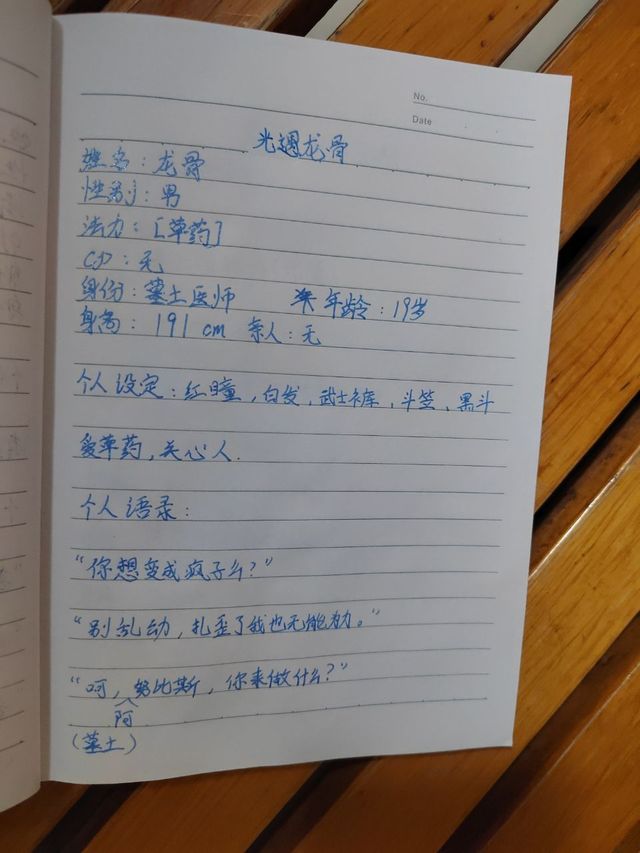 No.
Date
光遇龙骨
姓名：龙骨
性别：男
法力：[草药]
CD：无
身份：墓土医师 年龄：19岁
身高：191cm 亲人：无
个人设定：红瞳，白发，武士裤，斗笠，黑斗
爱草药，关心人.
个人语录：
“你想变成疯子么？”
“别乱动，扎歪了我也无能为力。”
“呵，阿努比斯，你来做什么？”
（墓土）